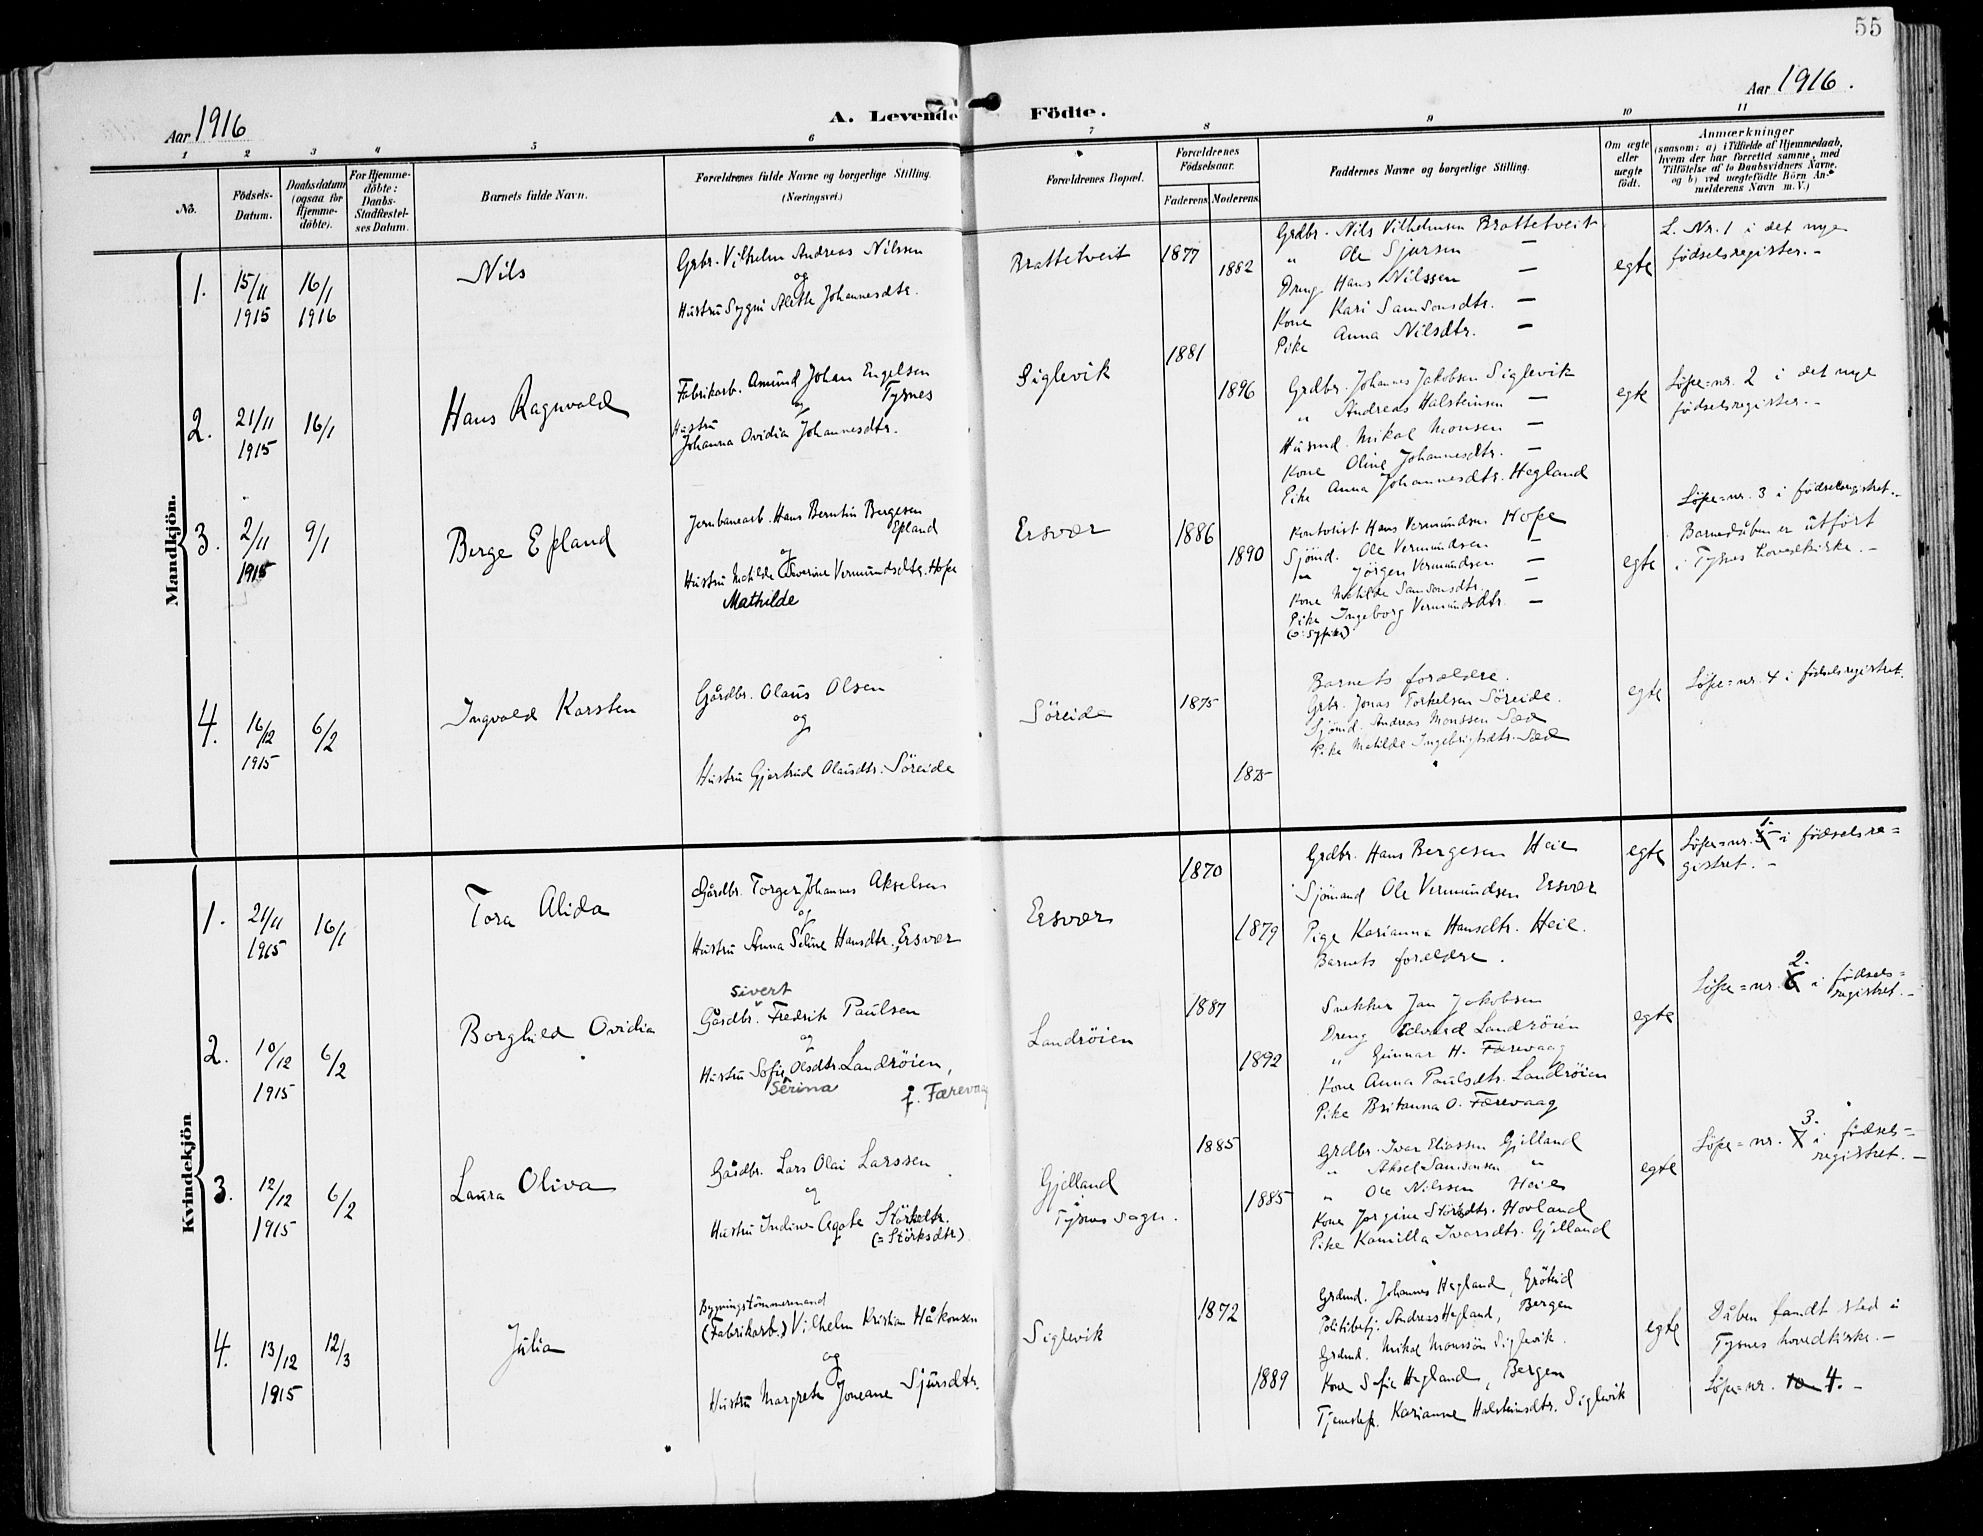 55
Aar 1916
Aar 1916.
A. Levende Födte.
1 2 3 4 5 6 7 8 9 10 11
No.
Födsels-Datum.
Daabsdatum (ogsaa for Hjemme-döbte).
For Hjemme-döbte: Daabs-Stadfæstel-ses Datum.
Barnets fulde Navn.
Forældrenes fulde Navne og borgerlige Stilling.
(Næringsvei.)
Forældrenes Bopæl.
Forældrenes Födselsaar.
Faderens
Moderens
Faddernes Navne og borgerlige Stilling.
Om ægte eller uægte födt.
Anmærkninger
(saasom: a) i Tilfælde af Hjemmedaab,
hvem der har forrettet samme, med
Tilföielse af to Daabsvidners Navne,
og b) ved uægtefödte Börn An-
melderens Navn m. V.)
Mandkjön.
1.
15/11 1915
16/1 1916
Nils
Grbr. Vilhelm Andreas Nilssen
og
Hustru Sygni Alette Johannesdtr.
Brattetveit
1877
1882
Grdbr. Nils Vilhelmsen Brattetveit
" Ole Sjursen —
Dreng Hans Nilssen —
Kone Kari Samsonsdtr. —
Pike Anna Nilsdtr. —
egte
L. Nr. 1 i det nye
födselsregister. -
2.
21/11 1915
16/1
Hans Ragnvald
Fabrikarb. Amund Johan Engelsen
Tysnes
og
Hustru
Johanna Ovidia Johannesdtr.
Siglevik
1881
1896
Grdbr. Johannes Jakobsen Siglevik
" Andreas Halsteinsen —
Husmd. Mikal Monsen —
Kone Oline Johannesdtr. —
Pike Anna Johannesdtr. Hegland
egte
Löpe=nr. 2 i det nye
födselsregister. -
3.
2/11 1915
9/1
Berge Epland
Jernbanearb. Hans Berntin Bergesen
Epland
og
Hustru Matilde Severine Vermundsdtr. Hope
Mathilde
Ersvær
1886
1890
Kontorist Hans Vermundsen Hope
Sjömd. Ole Vermundsen —
" Jörgen Vermundsen —
Kone Matilde Samsonsdtr. —
Pike Ingeborg Vermundsdtr. —
(o: sypike)
egte
Löpe=nr. 3 i födselsregistret. -
Barnedåben er utfört
i Tysnes hovedkirke. -
4.
16/12 1915
6/2
Ingvald Karsten
Gårdbr. Olaus Olsen
og
Hustru Gjertrud Olausdtr. Söreide
Söreide
1875
1875
Barnets forældre.
Grbr. Jonas Torkelsen Söreide.
Sjömd. Andreas Monssen Sæd
Pike Matilde Ingebrigtsdtr. Sæd
egte
Löpe=nr. 4 i födselsregistret.
Kvindekjön
1.
21/11 1915
16/1
Tora Alida
Gårdbr. Torger Johannes Akselsen
og
Hustru Anna Seline Hansdtr., Ersvær
Ersvær
1870
1879
Grdbr. Hans Bergesen Heie
Sjömand Ole Vermundsen Ersvær
Pige Karianna Hansdtr. Heie.
Barnets forældre.
egte
Löpe=nr. 5 1. i födselsre=
gistret. -
2.
10/12 1915
6/2
Borghild Ovidia
Sivert
Gårdbr. Fredrik Paulsen
og
Hustru Sofie Olsdtr. Landröien,
Serina f. Færevaag
Landröien
1887
1892
Snekker Jan Jakobsen
Dreng Edvard Landröien
" Gunnar H. Færevaag
Kone Anna Paulsdtr. Landröien
Pike Britanna O. Færevaag
egte
Löpe=nr. 6 2. i födsels=
registret. -
3.
12/12 1915
6/2
Laura Oliva
Gårdbr. Lars Olai Larssen
og
Hustru Indine Agate Störkeltr.
(= Störksdtr.)
Gjelland
i
Tysnes sogn.
1885
1885
Grdbr. Ivar Eliassen Gjelland
" Aksel Samsonsen "
" Ole Nilssen Heie
Kone Jorgine Störksdtr. Hovland
Pike Kamilla Ivarsdtr. Gjelland
egte
Löpe=nr. 7 3. i födsels=
registret. -
4.
13/12 1915
12/3
Julia
Bygningstömmermand
(Fabrikarb.) Vilhelm Kristian Håkonsen
og
Hustru Margrete Joneane Sjursdtr.
Siglevik
1872
1889
Grdmd. Johannes Hegland, Grökeid
Politibetj. Andreas Hegland, Bergen
Grdmd. Mikal Monssön Siglevik.
Kone Sofie Hegland, Bergen
Tjenstep. Karianne Halsteinsdtr. Siglevik
egte
Dåben fandt sted i
Tysnes hovedkirke. -
Löpe=nr. 10 4. -